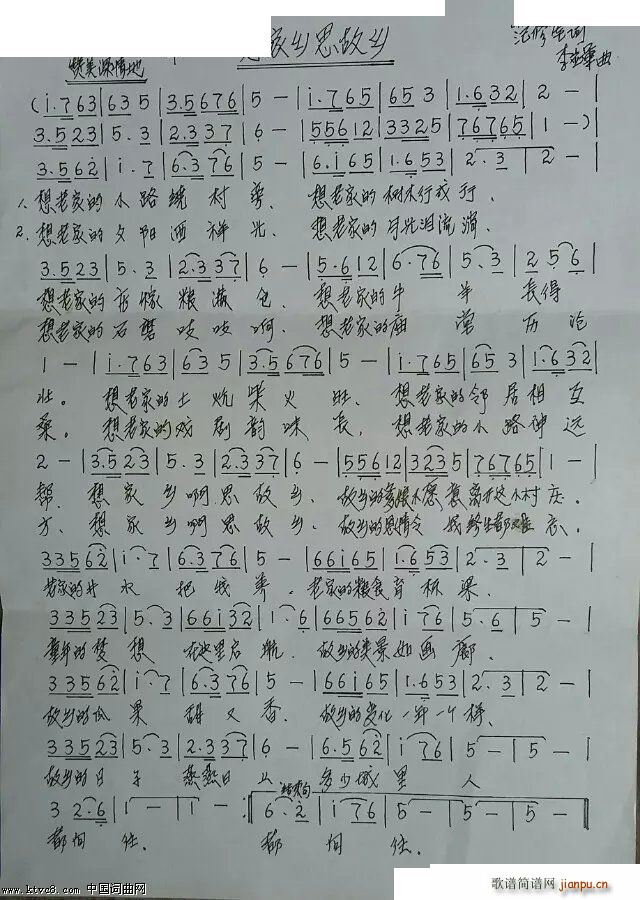 思故乡
赞美深情地
(i.763|635|3.5676|5 —|i.765|653|1.632|2 —|
3.523|5.3|2.337|6 —|55612|3325|76765|1 —)|
3.562|i.7|6.376|5 —|6.i65|1.653|2.3|2 —|
1. 想老家的小路绕村旁、想老家的树木行我行.
2. 想老家的夕阳洒祥光、想老家的月光泪流淌.
3.523|5.3|2.337|6 —|5.612|6.76|5.3|2 56|
想老家的 粮满仓、想老家的牛羊长得
想老家的石磨吱吱响、想老家的庙堂历沧
1 —|i.763|635|3.5676|5 —|i.765|653|1.632|
壮。想老家的土炕柴火旺、想老家的邻居相互
桑。想老家的戏剧韵味长,想老家的小路伸远
2 —|3.523|5.3|2.337|6 —|55612|3235|76765|1 —|
帮.想家乡啊思故乡、故乡的 不愿意离开这小村庄.
方、想家乡啊思故乡、故乡的恩情令我终生都难忘、
33562|i.7|6.376|5 —|66i65|1.653|2.3|2 —|
老家的井水把我养.老家的粮食育栋梁.
33523|5.3|66i32|1.6|66562|i 76|5.6|5 —|
童年的梦想在这里启航.故乡的美景如画廊.
33562|i.7|6.376|5 —|66i65|1.653|2.3|2 —|
故乡的瓜果甜又香.故乡的变化一年一个样.
33523|5.3|2.337|6 —|6.562|i 76|5 —|5 —|
故乡的日子 燕燕日上 多少城里人
结束句
3 2.6|1 —|1 —:|6.2|i 76|5 —|5 —|5 —||
都向往. 都向往.
www.ktvc8.com 中国词曲网
歌谱简谱网
jianpu.cn